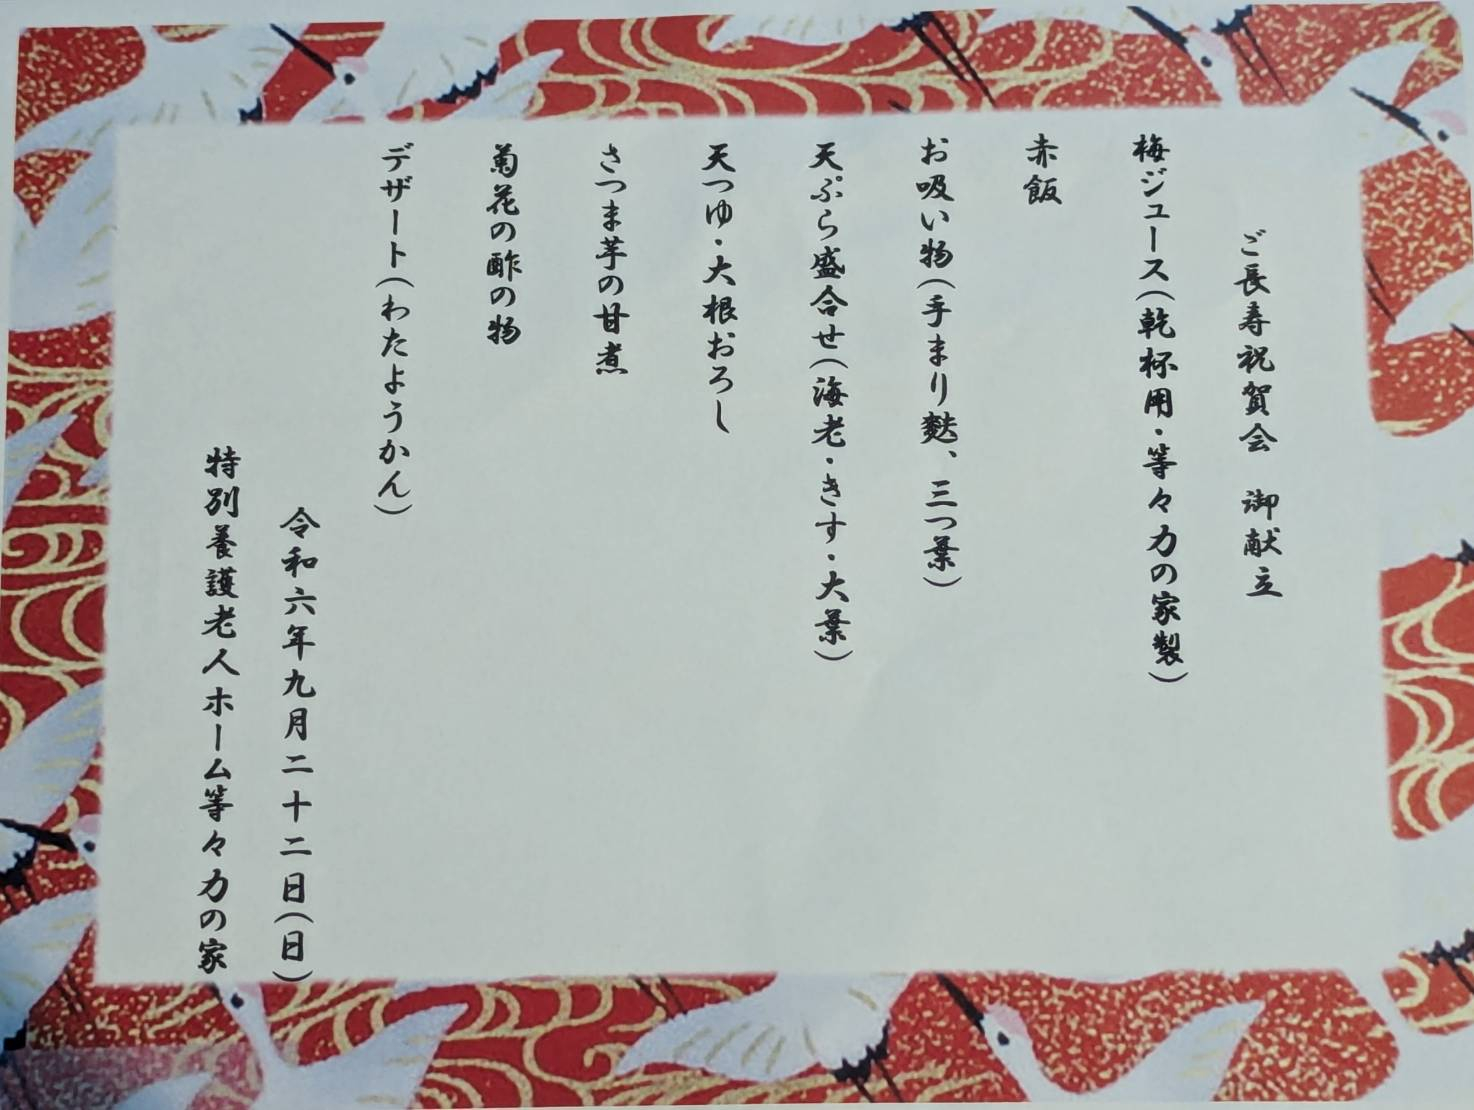 ご長寿祝賀会　御献立
梅ジュース(乾杯用・等々力の家製)
赤飯
お吸い物(手まり麩、三つ葉)
天ぷら盛合せ(海老・きす・大葉)
天つゆ・大根おろし
さつま芋の甘煮
菊花の酢の物
デザート(わたようかん)
令和六年九月二十二日(日)
特別養護老人ホーム等々力の家